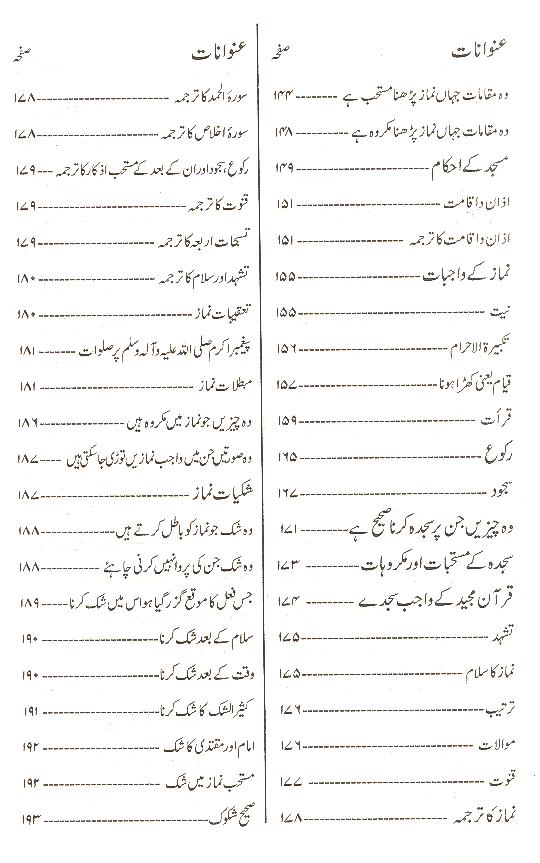 عنوانات صفحہ
وہ مقامات جہاں نماز پڑھنا مستحب ہے -------- ۱۴۴
وہ مقامات جہاں نماز پڑھنا مکروہ ہے -------- ۱۴۸
مسجد کے احکام -------- ۱۴۹
اذان واقامت -------- ۱۵۱
اذان واقامت کا ترجمہ -------- ۱۵۱
نماز کے واجبات -------- ۱۵۵
نیت -------- ۱۵۵
تکبیرۃ الاحرام -------- ۱۵۶
قیام یعنی کھڑا ہونا -------- ۱۵۷
قرأت -------- ۱۵۹
رکوع -------- ۱۶۵
سجود -------- ۱۶۷
وہ چیزیں جن پر سجدہ کرنا صحیح ہے -------- ۱۷۱
سجدہ کے مستحبات اور مکروہات -------- ۱۷۳
قرآن مجید کے واجب سجدے -------- ۱۷۴
تشہد -------- ۱۷۵
نماز کا سلام -------- ۱۷۵
ترتیب -------- ۱۷۶
موالات -------- ۱۷۶
قنوت -------- ۱۷۷
نماز کا ترجمہ -------- ۱۷۸
عنوانات صفحہ
سورۂ الحمد کا ترجمہ -------- ۱۷۸
سورۂ اخلاص کا ترجمہ -------- ۱۷۸
رکوع، سجود اور ان کے بعد کے مستحب اذکار کا ترجمہ --- ۱۷۹
قنوت کا ترجمہ -------- ۱۷۹
تسبیحات اربعہ کا ترجمہ -------- ۱۷۹
تشہد اور سلام کا ترجمہ -------- ۱۸۰
تعقیبات نماز -------- ۱۸۰
پیغمبر اکرم صلی اللہ علیہ وآلہ وسلم پر صلوات -------- ۱۸۱
مبطلات نماز -------- ۱۸۱
وہ چیزیں جو نماز میں مکروہ ہیں -------- ۱۸۶
وہ صورتیں جن میں واجب نمازیں توڑی جاسکتی ہیں ---- ۱۸۷
شکیات نماز -------- ۱۸۷
وہ شک جو نماز کو باطل کرتے ہیں -------- ۱۸۸
وہ شک جن کی پروا نہیں کرنی چاہئے -------- ۱۸۸
جس فعل کا موقع گزر گیا ہو اس میں شک کرنا ----- ۱۸۹
سلام کے بعد شک کرنا -------- ۱۹۰
وقت کے بعد شک کرنا -------- ۱۹۰
کثیر الشک کا شک کرنا -------- ۱۹۱
امام اور مقتدی کا شک -------- ۱۹۲
مستحب نماز میں شک -------- ۱۹۲
صحیح شکوک -------- ۱۹۳